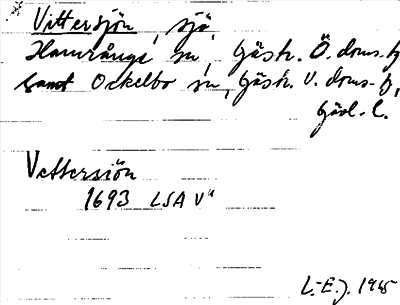 Vittersjön, sjö,
Hamrånge sn, Gästr. Ö. doms.h
samt Ockelbo sn, Gästr. V. doms.h,
Gävl. l.
Vettersiön
1693 LSA V"
L.-E.J. 1945